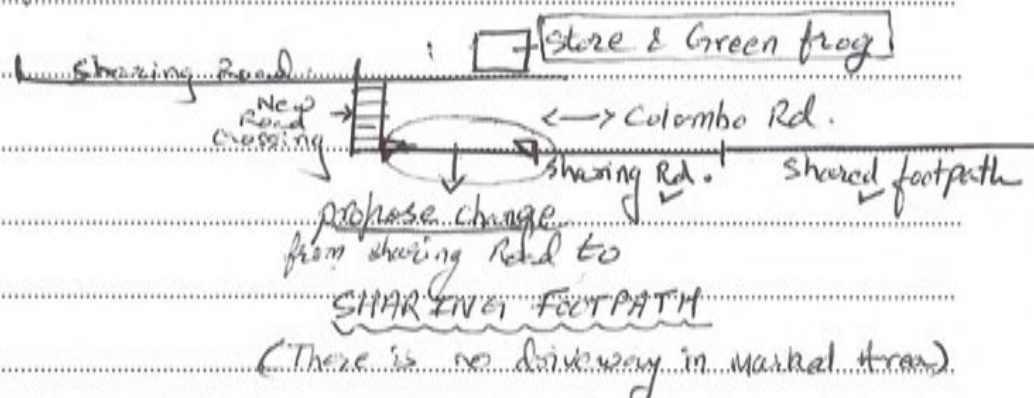 Store & Green frog
Sharing Road.
New
Road
Crossing
<--> Colombo Rd.
Sharing Rd.
Shared footpath
propose change
from sharing Road to
SHARING FOOTPATH
(There is no driveway in marked Area)